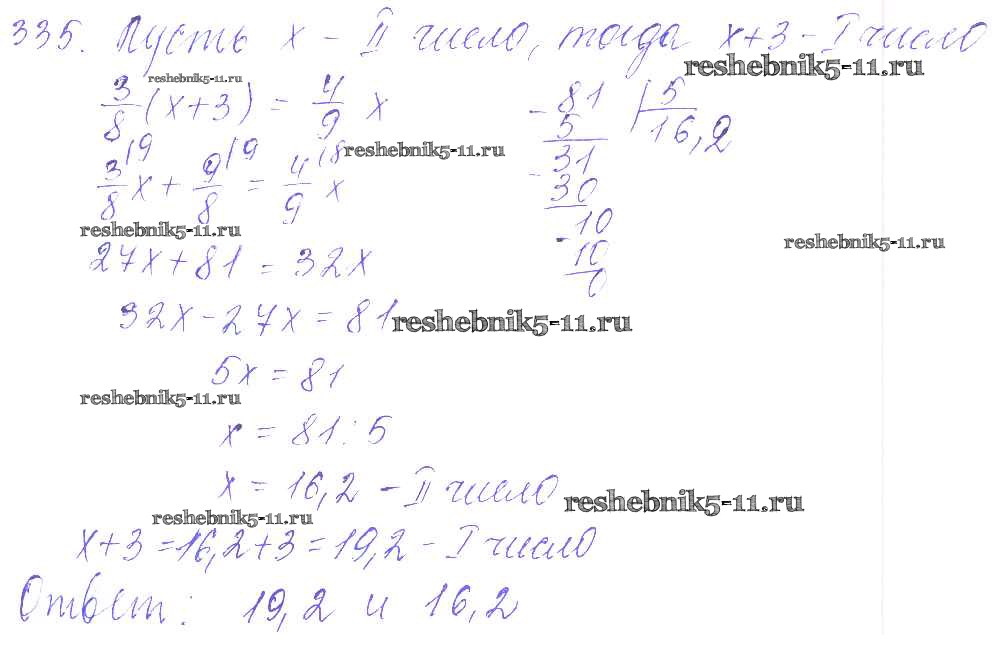 335. Пусть x – II число, тогда x+3 – I число
reshebnik5-11.ru
reshebnik5-11.ru
3/8 (x+3) = 4/9 x
- 81 | 5
5 16,2
31
- 30
10
- 10
0
3/8 |9 x + 9/8 |9 = 4/9 |8 x
reshebnik5-11.ru
reshebnik5-11.ru
reshebnik5-11.ru
27x+81 = 32x
32x – 27x = 81
reshebnik5-11.ru
5x = 81
reshebnik5-11.ru
x = 81 : 5
x = 16,2 – II число
reshebnik5-11.ru
reshebnik5-11.ru
x+3 = 16,2+3 = 19,2 – I число
Ответ: 19,2 и 16,2